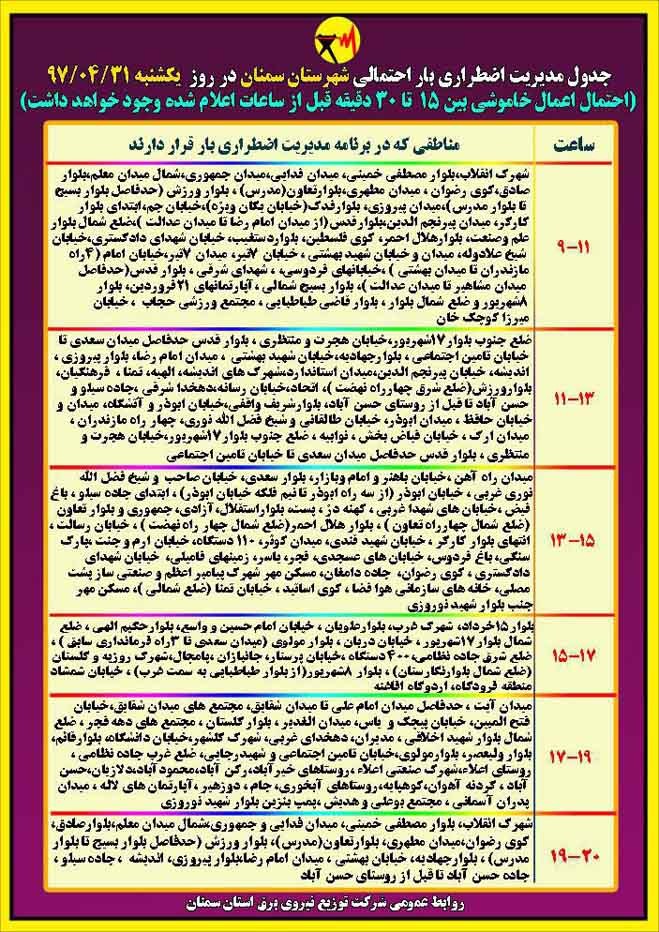 جدول مدیریت اضطراری بار احتمالی شهرستان سمنان در روز یکشنبه ۹۷/۰۴/۳۱
(احتمال اعمال خاموشی بین ۱۵ تا ۳۰ دقیقه قبل از ساعات اعلام شده وجود خواهد داشت)
ساعت
مناطقی که در برنامه مدیریت اضطراری بار قرار دارند
۹-۱۱
شهرک انقلاب،بلوار مصطفی خمینی، میدان فدایی،میدان جمهوری،شمال میدان معلم،بلوار
صادق،کوی رضوان ، میدان مطهری،بلوارتعاون(مدرس) ، بلوار ورزش (حدفاصل بلوار بسیج
تا بلوار مدرس)، میدان پیروزی، بلوارفدک(خیابان یگان ویژه)، خیابان جم،ابتدای بلوار
کارگر، میدان پیرنجم الدین،بلوارقدس(از میدان امام رضا تا میدان عدالت )،ضلع شمال بلوار
علم وصنعت، بلوارهلال احمر، کوی فلسطین، بلواردستغیب، خیابان شهدای دادگستری،خیابان
شیخ علاءدوله، میدان و خیابان شهید بهشتی ، خیابان ۷تیر، میدان ۷تیر،خیابان امام (۴راه
مازندران تا میدان بهشتی ) ، خیابانهای فردوسی، ، شهدای شرقی ، بلوار قدس(حدفاصل
میدان مشاهیر تا میدان عدالت )، بلوار بسیج شمالی ، آپارتمانهای ۲۱فروردین، بلوار
۸شهریور و ضلع شمال بلوار ، بلوار قاضی طباطبایی ، مجتمع ورزشی حجاب ، خیابان
میرزا کوچک خان
۱۱-۱۳
ضلع جنوب بلوار۱۷شهریور،خیابان هجرت و منتظری ، بلوار قدس حدفاصل میدان سعدی تا
خیابان تامین اجتماعی ، بلوارجهادیه،خیابان شهید بهشتی ، میدان امام رضا، بلوار پیروزی ،
اندیشه، خیابان پیرنجم الدین،میدان استاندارد،شهرک های اندیشه، الهیه، تمنا ، فرهنگیان،
بلوارورزش(ضلع شرق چهارراه نهضت )، اتحاد،خیابان رسانه،دهخدا شرقی ،جاده سیلو و
حسن آباد تا قبل از روستای حسن آباد، بلوارشریف واقفی،خیابان ابوذر و آتشگاه، میدان و
خیابان حافظ ، میدان ابوذر، خیابان طالقانی و شیخ فضل الله نوری، چهار راه مازندران ،
میدان ارگ ، خیابان فیاض بخش ، نوابیه ، ضلع جنوب بلوار۱۷شهریور،خیابان هجرت و
منتظری ، بلوار قدس حدفاصل میدان سعدی تا خیابان تامین اجتماعی
۱۳-۱۵
میدان راه آهن، خیابان باهنر و امام وبازار، بلوار سعدی، خیابان صاحب و شیخ فضل الله
نوری غربی ، خیابان ابوذر (از سه راه ابوذر تا نیم فلکه خیابان ابوذر) ، ابتدای جاده سیلو ، باغ
فیض، خیابان های شهدا غربی ، کهنه دژ ، پست، بلواراستقلال، آزادی، جمهوری و بلوار تعاون
(ضلع شمال چهارراه تعاون ) ، بلوار هلال احمر(ضلع شمال چهار راه نهضت ) ، خیابان رسالت ،
انتهای بلوار کارگر ، خیابان شهید قندی، میدان کوثر، ۱۱۰ دستگاه، خیابان ارم و جنت ،پارک
سنگی، باغ فردوس، خیابان های عسجدی، فجر، یاسر، زمینهای فامیلی، خیابان شهدای
دادگستری ، کوی رضوان، جاده دامغان، مسکن مهر شهرک پیامبر اعظم و صنعتی ساز پشت
مصلی، خانه های سازمانی هوا فضا ، کوی اساتید ، خیابان تمنا (ضلع شمالی )، مسکن مهر
جنب بلوار شهید نوروزی
۱۵-۱۷
بلوار ۱۵خرداد، شهرک غرب، بلوارعلویان ، خیابان امام حسین و واسع، بلوارحکیم الهی ، ضلع
شمال بلوار۱۷شهریور ، خیابان دربان ، بلوار مولوی (میدان سعدی تا ۳راه فرمانداری سابق ) ،
ضلع شرق جاده نظامی،۴۰۰دستگاه ،خیابان پرستار، جانبازان ،بامجال،شهرک روزیه و گلستان
(ضلع شمال بلوارنگارستان) ، بلوار ۸شهریور(ازبلوار طباطبایی به سمت غرب)، خیابان شمشاد
منطقه فرودگاه، اردوگاه افاغنه
۱۷-۱۹
میدان آیت ، حدفاصل میدان امام علی تا میدان شقایق، مجتمع های میدان شقایق،خیابان
فتح المبین، خیابان پیچک و یاس، میدان الغدیر ، بلوار گلستان ، مجتمع های دهه فجر ، ضلع
شمال بلوار شهید اخلاقی ، مدیران، دهخدای غربی، شهرک گلشهر،خیابان دانشگاه، بلوارقائم،
بلوار ولیعصر، بلوارمولوی،خیابان تامین اجتماعی و شهیدرجایی، ضلع غرب جاده نظامی ،
روستای اعلاء،شهرک صنعتی اعلاء ،روستاهای خیرآباد، رکن آباد،محمودآباد،دلازیان،حسن
آباد ، گردنه آهوان،کوهپایه،روستاهای آبخوری، جام ، دوزهیر، آپارتمان های لاله ، میدان
پدران آسمانی ، مجتمع بوعلی و هدیش، پمپ بنزین بلوار شهید نوروزی
۱۹-۲۰
شهرک انقلاب، بلوار مصطفی خمینی، میدان فدایی و جمهوری،شمال میدان معلم،بلوارصادق،
کوی رضوان،میدان مطهری، بلوارتعاون(مدرس)، بلوار ورزش (حدفاصل بلوار بسیج تا بلوار
مدرس) ، بلوارجهادیه، خیابان بهشتی ، میدان امام رضا،بلوار پیروزی، اندیشه ، جاده سیلو ،
جاده حسن آباد تا قبل از روستای حسن آباد
روابط عمومی شرکت توزیع نیروی برق استان سمنان